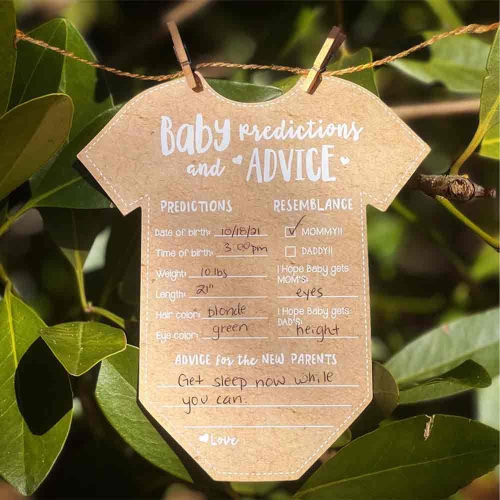 Baby Predictions
and ADVICE
PREDICTIONS
Date of birth: 10/18/21
Time of birth: 3:00pm
Weight: 10 lbs
Length: 21"
Hair color: blonde
Eye color: green
RESEMBLANCE
✓ MOMMY!!
DADDY!!
I Hope Baby gets
MOM'S:
eyes
I Hope Baby gets
DAD'S:
height
ADVICE for the NEW PARENTS
Get sleep now while
you can.
Love